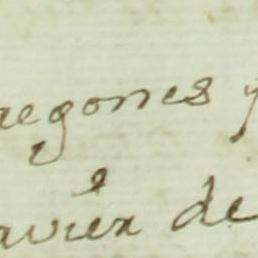 regones y
avier de